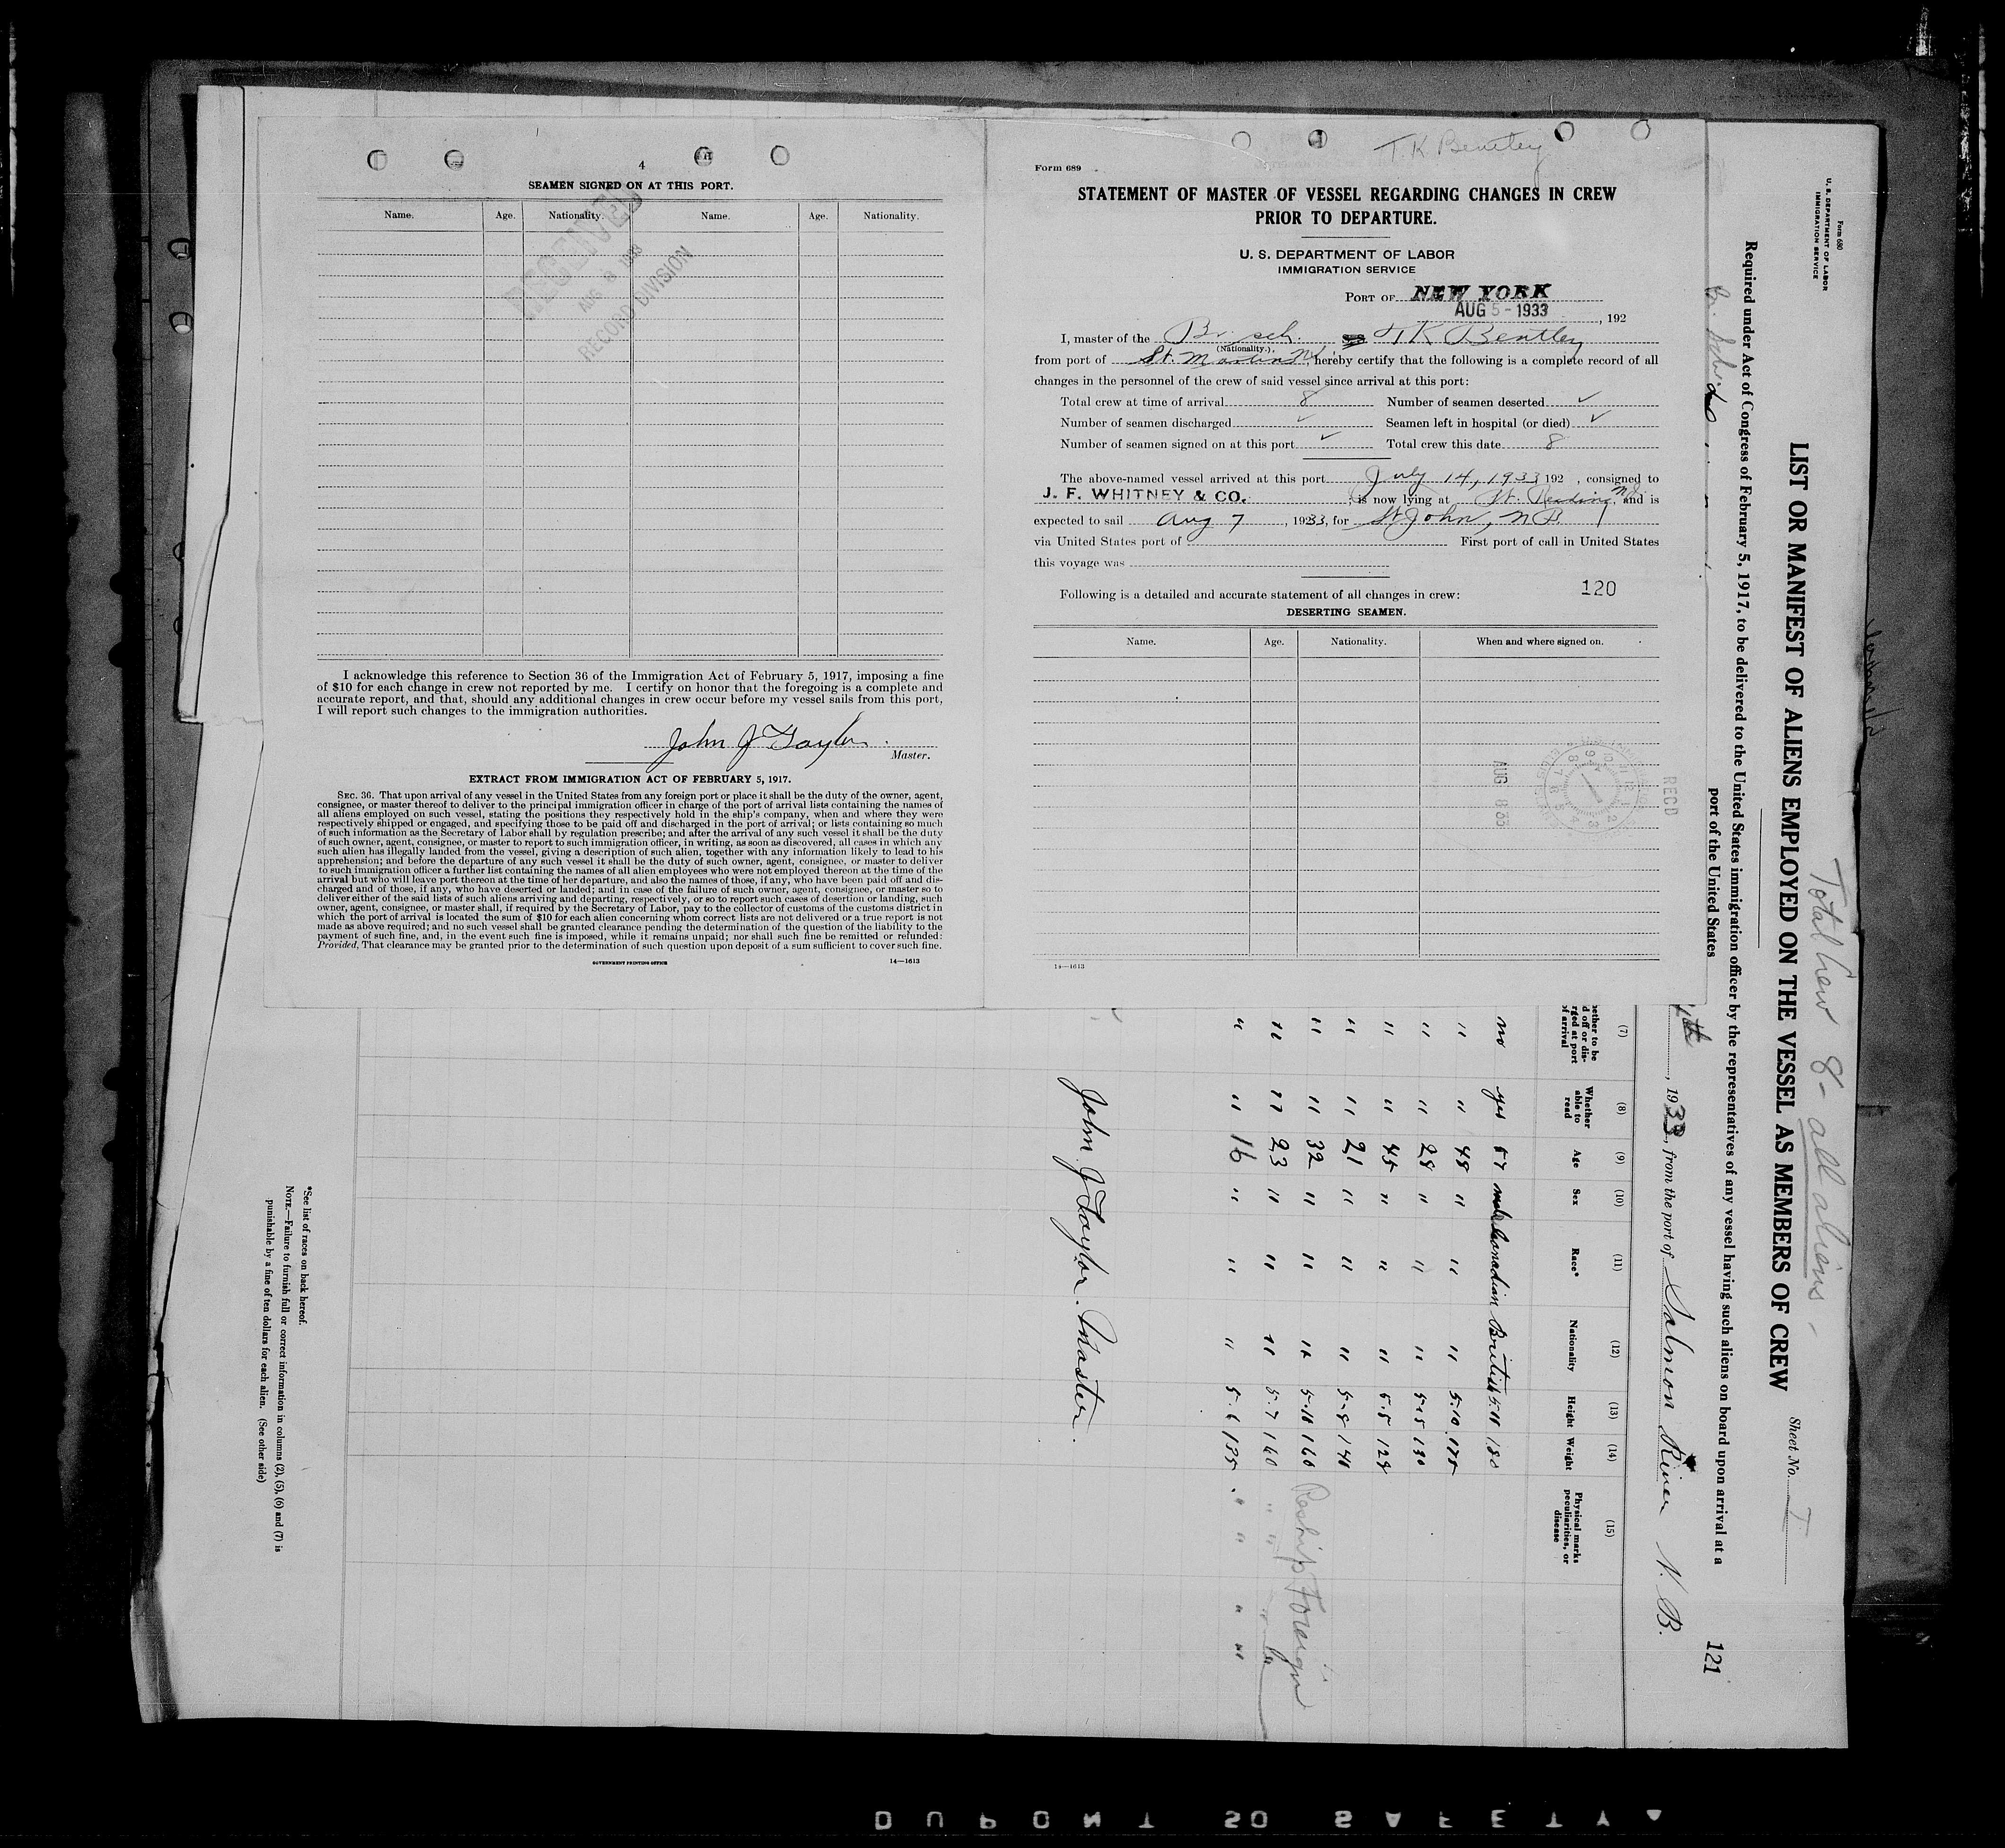 4
SEAMEN SIGNED ON AT THIS PORT.
Name. Age. Nationality. Name. Age. Nationality.
RECEIVED
AUG 8 1933
RECORD DIVISION
I acknowledge this reference to Section 36 of the Immigration Act of February 5, 1917, imposing a fine
of $10 for each change in crew not reported by me. I certify on honor that the foregoing is a complete and
accurate report, and that, should any additional changes in crew occur before my vessel sails from this port,
I will report such changes to the immigration authorities.
John J Taylor.
Master.
EXTRACT FROM IMMIGRATION ACT OF FEBRUARY 5, 1917.
SEC. 36. That upon arrival of any vessel in the United States from any foreign port or place it shall be the duty of the owner, agent,
consignee, or master thereof to deliver to the principal immigration officer in charge of the port of arrival lists containing the names of
all aliens employed on such vessel, stating the positions they respectively hold in the ship's company, when and where they were
respectively shipped or engaged, and specifying those to be paid off and discharged in the port of arrival; or lists containing so much
of such information as the Secretary of Labor shall by regulation prescribe; and after the arrival of any such vessel it shall be the duty
of such owner, agent, consignee, or master to report to such immigration officer, in writing, as soon as discovered, all cases in which any
such alien has illegally landed from the vessel, giving a description of such alien, together with any information likely to lead to his
apprehension; and before the departure of any such vessel it shall be the duty of such owner, agent, consignee, or master to deliver
to such immigration officer a further list containing the names of all alien employees who were not employed thereon at the time of the
arrival but who will leave port thereon at the time of her departure, and also the names of those, if any, who have been paid off and dis-
charged and of those, if any, who have deserted or landed; and in case of the failure of such owner, agent, consignee, or master so to
deliver either of the said lists of such aliens arriving and departing, respectively, or so to report such cases of desertion or landing, such
owner, agent, consignee, or master shall, if required by the Secretary of Labor, pay to the collector of customs of the customs district in
which the port of arrival is located the sum of $10 for each alien concerning whom correct lists are not delivered or a true report is not
made as above required; and no such vessel shall be granted clearance pending the determination of the question of the liability to the
payment of such fine, and, in the event such fine is imposed, while it remains unpaid; nor shall such fine be remitted or refunded:
Provided, That clearance may be granted prior to the determination of such question upon deposit of a sum sufficient to cover such fine.
GOVERNMENT PRINTING OFFICE 14—1613
T. K. Bentley
Form 689
STATEMENT OF MASTER OF VESSEL REGARDING CHANGES IN CREW
PRIOR TO DEPARTURE.
U. S. DEPARTMENT OF LABOR
IMMIGRATION SERVICE
PORT OF NEW YORK
AUG 5 - 1933, 192
I, master of the Br. sch. T K Bentley
(Nationality.)
from port of St. Martins N.B., hereby certify that the following is a complete record of all
changes in the personnel of the crew of said vessel since arrival at this port:
Total crew at time of arrival 8 Number of seamen deserted ✓
Number of seamen discharged ✓ Seamen left in hospital (or died) ✓
Number of seamen signed on at this port ✓ Total crew this date 8
The above-named vessel arrived at this port July 14, 1933 192 , consigned to
J. F. WHITNEY & CO. , is now lying at Pt. Reading NJ and is
expected to sail Aug 7, 1933, for St John, N.B.
via United States port of First port of call in United States
this voyage was
Following is a detailed and accurate statement of all changes in crew: 120
DESERTING SEAMEN.
Name. Age. Nationality. When and where signed on.
AUG 8 33
RECD
14—1613
Form 680
U. S. DEPARTMENT OF LABOR
IMMIGRATION SERVICE
Total Crew 8 - all aliens -
LIST OR MANIFEST OF ALIENS EMPLOYED ON THE VESSEL AS MEMBERS OF CREW
Sheet No. 1
Required under Act of Congress of February 5, 1917, to be delivered to the United States immigration officer by the representatives of any vessel having such aliens on board upon arrival at a
port of the United States
121
th, 1933, from the port of Salmon River N. B.
(7) (8) (9) (10) (11) (12) (13) (14) (15)
Whether able to read Age Sex Race* Nationality Height Weight Physical marks peculiarities, or disease
no yes 57 male Canadian British 5.11 180
" " 48 " " " 5.10 175
" " 28 " " " 5-5 130
" " 45 " " " 5.5 128
" " 21 " " " 5-8 140
" " 32 " " " 5-10 160 Reship Foreign
" " 23 " " " 5.7 160 " "
" " 16 " " " 5.6 135 " " " "
John J Taylor. Master.
*See list of races on back hereof.
NOTE.—Failure to furnish full or correct information in columns (2), (5), (6) and (7) is
punishable by a fine of ten dollars for each alien. (See other side)
DUPONT SO SAFETY